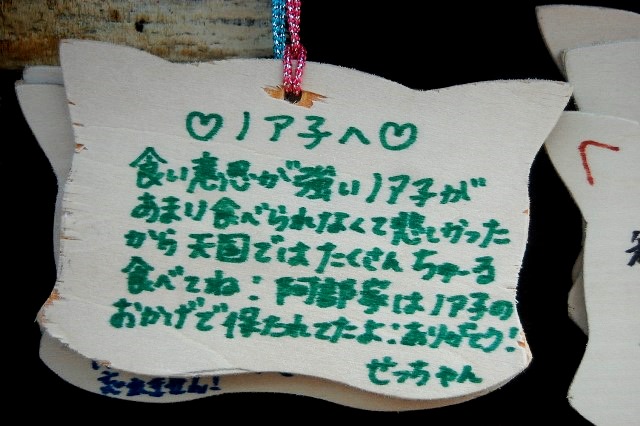 ♡ノア子へ♡
食い意思が強いノア子が
あまり食べられなくて悲しかった
から天国ではたくさんちゅーる
食べてね：阿部家はノア子の
おかげで保たれてたよ：ありがとう！
ぜっちゃん